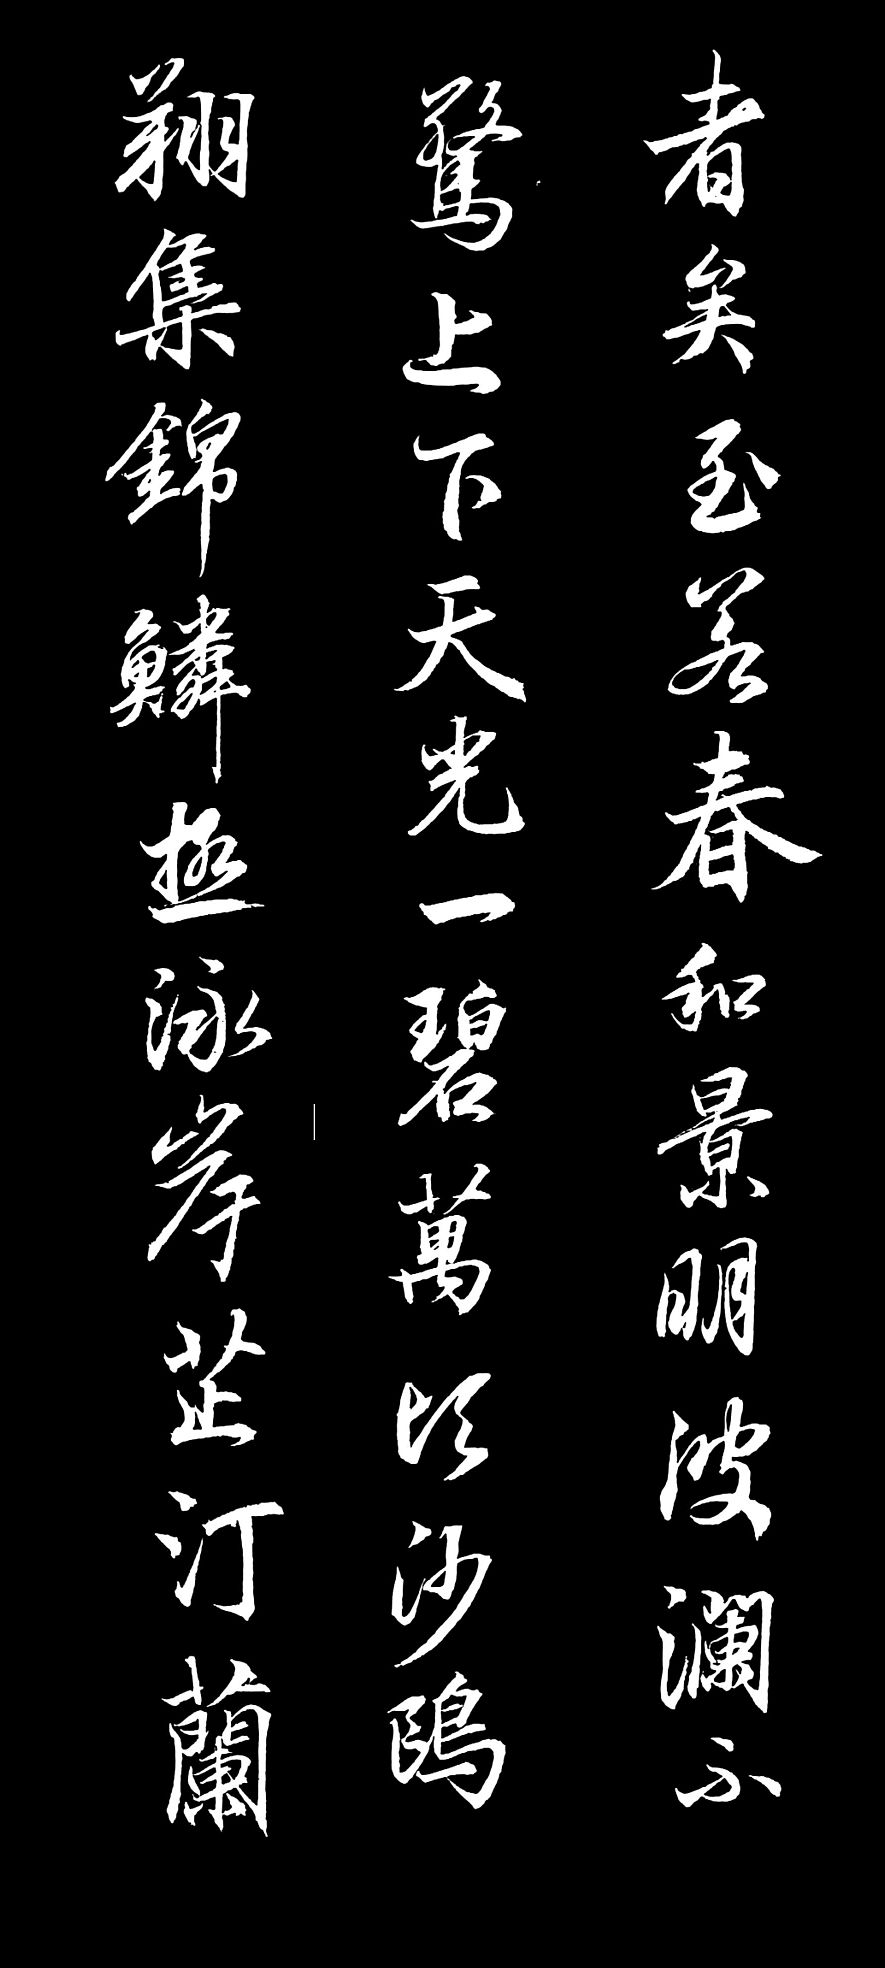 者矣至若春和景明波瀾不
驚上下天光一碧萬頃沙鷗
翔集錦鱗極泳岸芷汀蘭